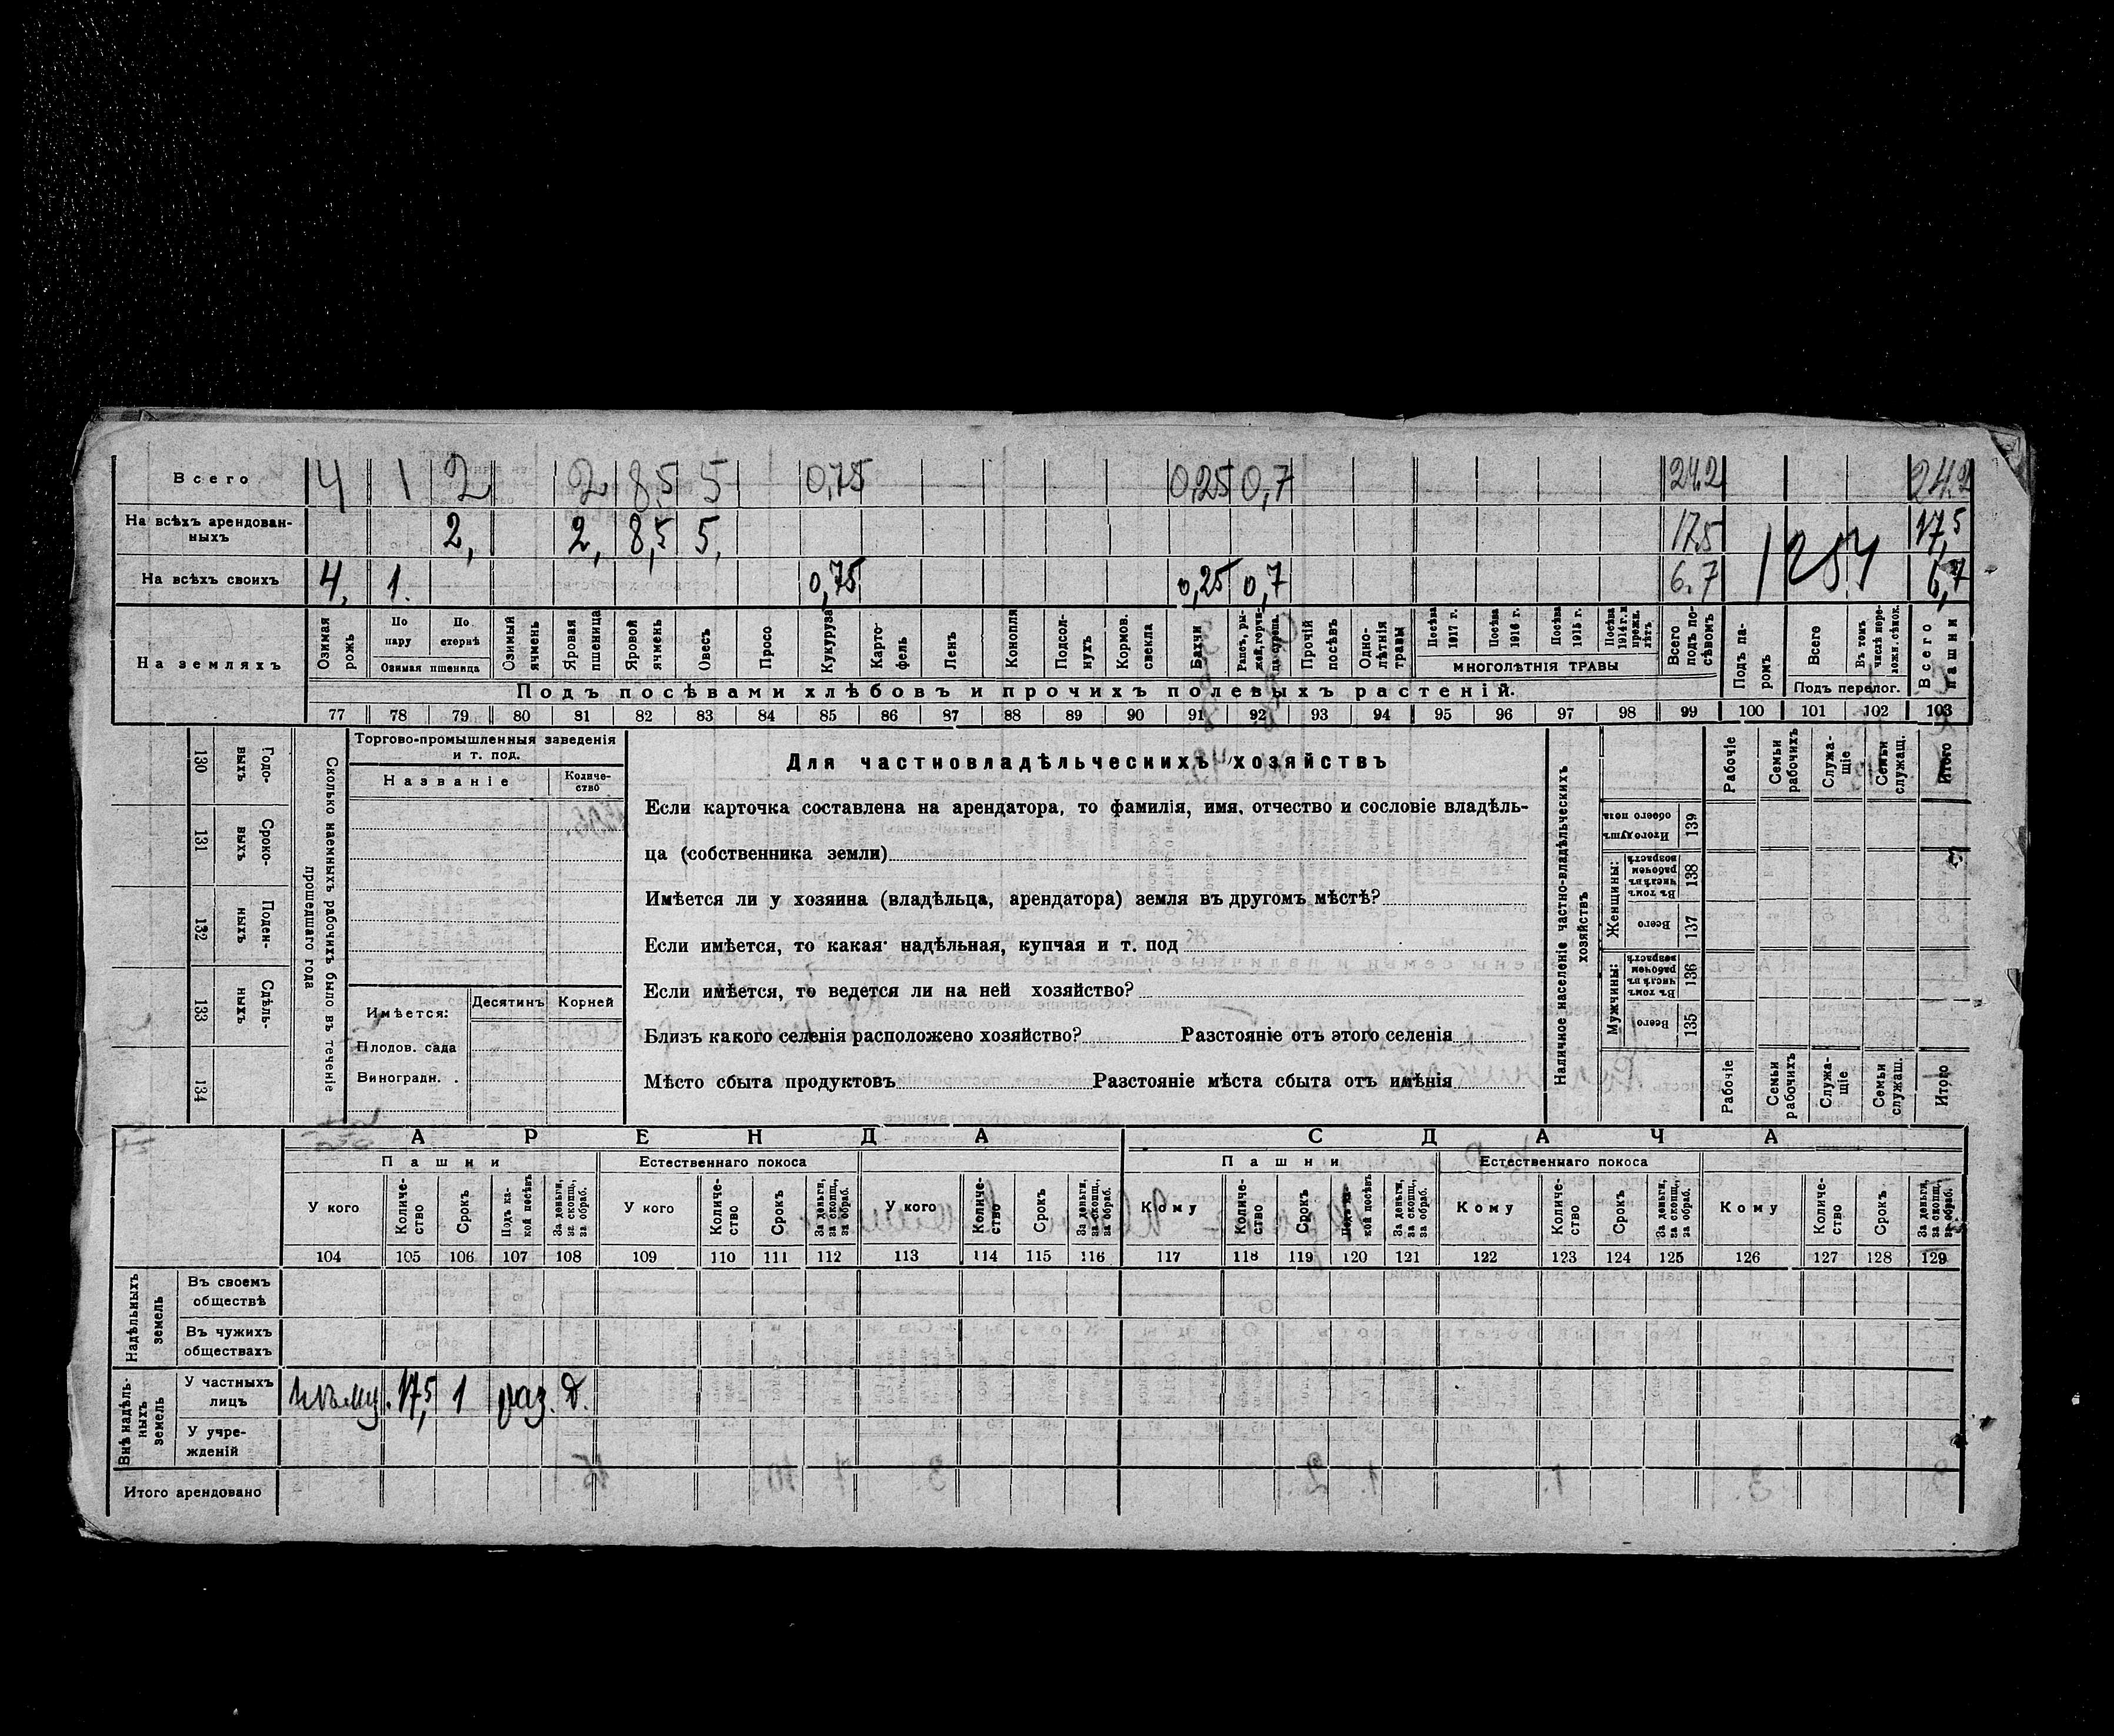 Всего 4 1 2 2 8,5 5 0,75 0,25 0,7 24.2 24.2
На всѣхъ арендован-
ныхъ 2, 2, 8,5 5, 17.5 17,5
На всѣхъ своихъ 4, 1. 0,75 0,25 0,7 6.7 6,7
1257
На земляхъ
Озимая рожь
По пару
По стернѣ
Озимая пшеница
Озимый ячмень
Яровая пшеница
Яровой ячмень
Овесъ
Просо
Кукуруза
Карто-
фель
Ленъ
Конопля
Подсол-
нухъ
Кормов.
свекла
Бахчи
Рапсъ, ры-
жей, горчи-
Прочій
посѣвъ
Одно-
лѣтнія
травы
Посѣва
1917 г.
Посѣва
1916 г.
Посѣва
1915 г.
Посѣва
1914 г. и
прежн.
лѣтъ
МНОГОЛѢТНІЯ ТРАВЫ
Всего
подъ по-
сѣвомъ
Подъ па-
ромъ
Всего
Въ томъ
числѣ пере-
ложн. сѣнок.
Подъ перелог.
Всего
пашни
Подъ посѣвами хлѣбовъ и прочихъ полевыхъ растеній.
77 78 79 80 81 82 83 84 85 86 87 88 89 90 91 92 93 94 95 96 97 98 99 100 101 102 103
130 Годо-
выхъ
131 Сроко-
выхъ
132 Поден-
ныхъ
133 Сдѣль-
ныхъ
134
Сколько наемныхъ рабочихъ было въ теченіе
прошедшаго года
Торгово-промышленныя заведенія
и т. под.
Названіе
Количе-
ство
Имѣется:
Десятинъ Корней
Плодов. сада
Виноградн. .
Для частновладѣльческихъ хозяйствъ
Если карточка составлена на арендатора, то фамилія, имя, отчество и сословіе владѣль-
ца (собственника земли)
Имѣется ли у хозяина (владѣльца, арендатора) земля въ другомъ мѣстѣ?
Если имѣется, то какая: надѣльная, купчая и т. под
Если имѣется, то ведется ли на ней хозяйство?
Близъ какого селенія расположено хозяйство? Разстояніе отъ этого селенія
Мѣсто сбыта продуктовъ Разстояніе мѣста сбыта отъ имѣнія
Наличное населеніе частно-владѣльческихъ
хозяйствъ
Рабочіе
Семьи
рабочихъ
Служа-
щіе
Семьи
служащ.
Итого
Итого душъ
обоего пола
139
Женщины:
Въ томъ
числѣ въ
рабочемъ
возрастѣ
138
Всего
137
Мужчины:
Въ томъ
числѣ въ
рабочемъ
возрастѣ
136
Всего
135
Рабочіе
Семьи
рабочихъ
Служа-
щіе
Семьи
служащ.
Итого
АРЕНДА СДАЧА
Пашни Естественнаго покоса Пашни Естественнаго покоса
У кого
Количе-
ство
Срокъ
Подъ ка-
кой посѣвъ
За деньги,
за скопщ.,
за обраб.
У кого
Количе-
ство
Срокъ
За деньги,
за скопщ.,
за обраб.
У кого
Количе-
ство
Срокъ
За деньги,
за скопщ.,
за обраб.
Кому
Количе-
ство
Срокъ
Подъ ка-
кой посѣвъ
За деньги,
за скопщ.,
за обраб.
Кому
Количе-
ство
Срокъ
За деньги,
за скопщ.,
за обраб.
Кому
Количе-
ство
Срокъ
За деньги,
за скопщ.,
за обраб.
104 105 106 107 108 109 110 111 112 113 114 115 116 117 118 119 120 121 122 123 124 125 126 127 128 129
Надѣльныхъ
земель
Въ своемъ
обществѣ
Въ чужихъ
обществахъ
Внѣ надѣль-
ныхъ
земель
У частныхъ
лицъ 17,5 1 раз. д.
У учре-
жденій
Итого арендовано